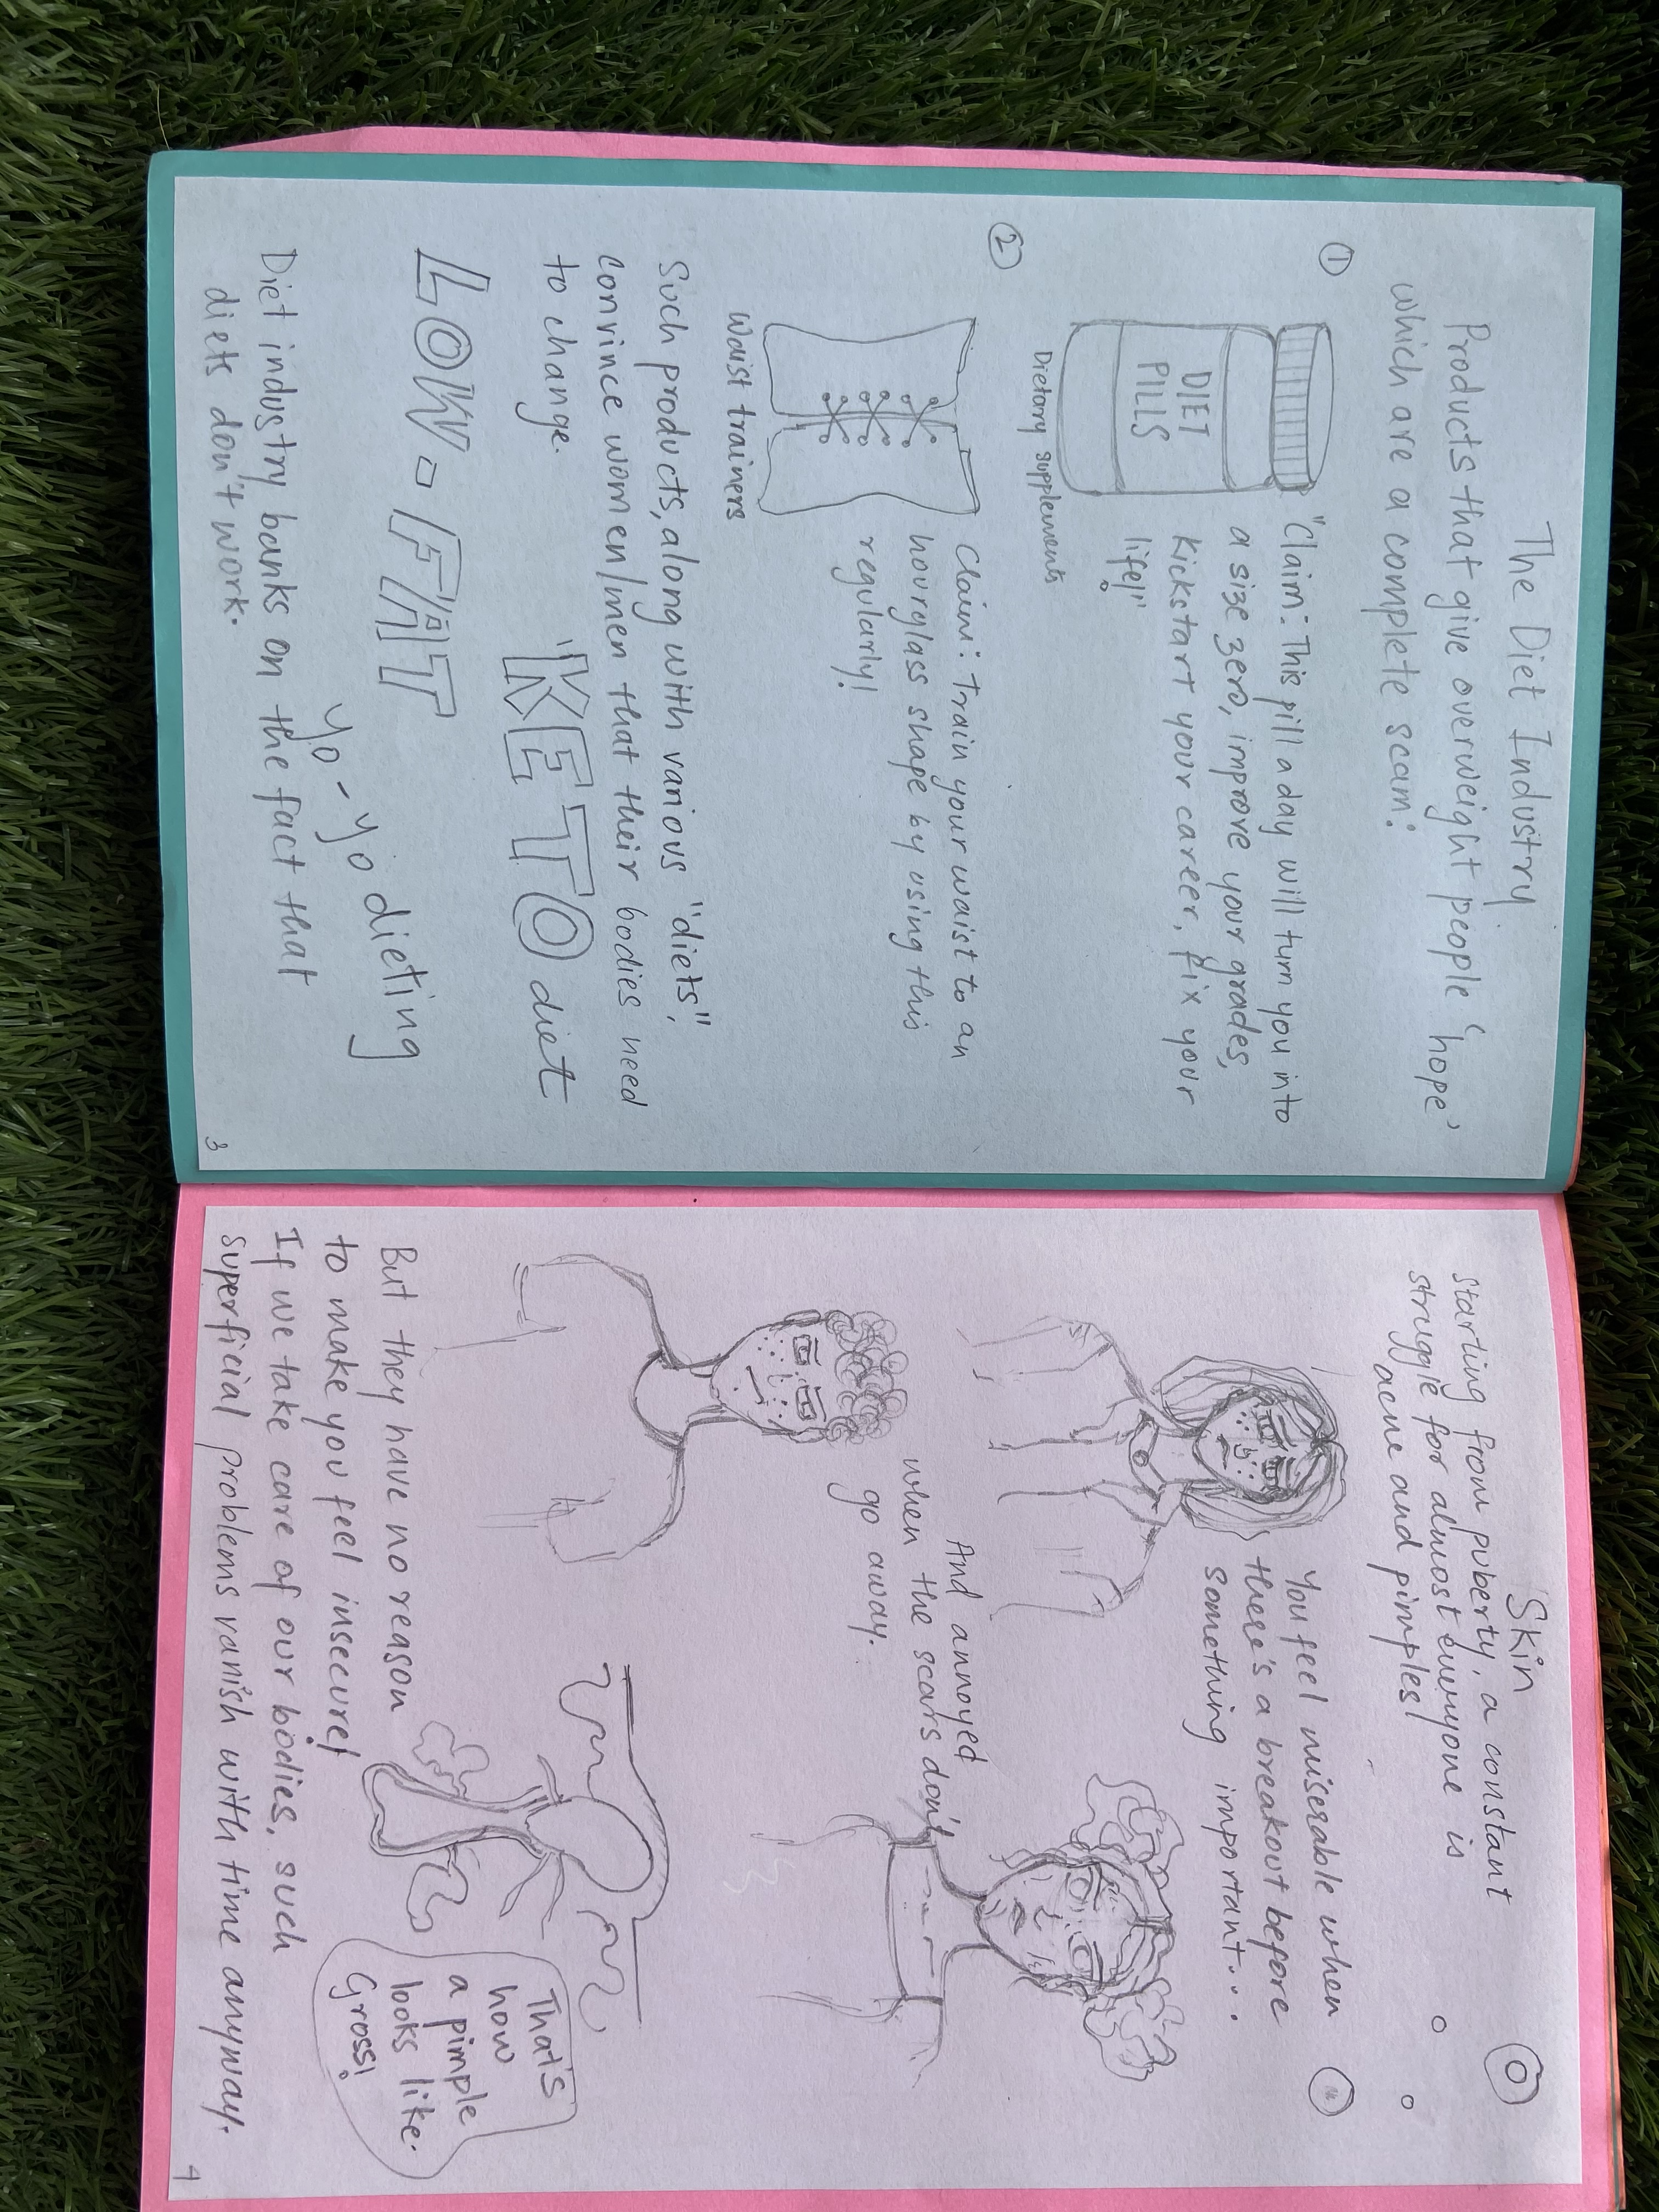 The Diet Industry
Products that give overweight people 'hope'
which are a complete scam:
①
DIET
PILLS
Dietary supplements
"Claim: This pill a day will turn you into
a size zero, improve your grades,
kickstart your career, fix your
life!"
②
Waist trainers
Claim: Train your waist to an
hourglass shape by using this
regularly!
Such products, along with various "diets",
convince women/men that their bodies need
to change.
"KETO diet
LOW-FAT
yo-yo dieting
Diet industry banks on the fact that
diets don't work.
3
Skin
Starting from puberty, a constant
struggle for almost everyone is
acne and pimples!
You feel miserable when
there's a breakout before
something important...
And annoyed
when the scars don't
go away.
But they have no reason
to make you feel insecure!
If we take care of our bodies, such
superficial problems vanish with time anyway.
That's
how
a pimple
looks like.
Gross!
4